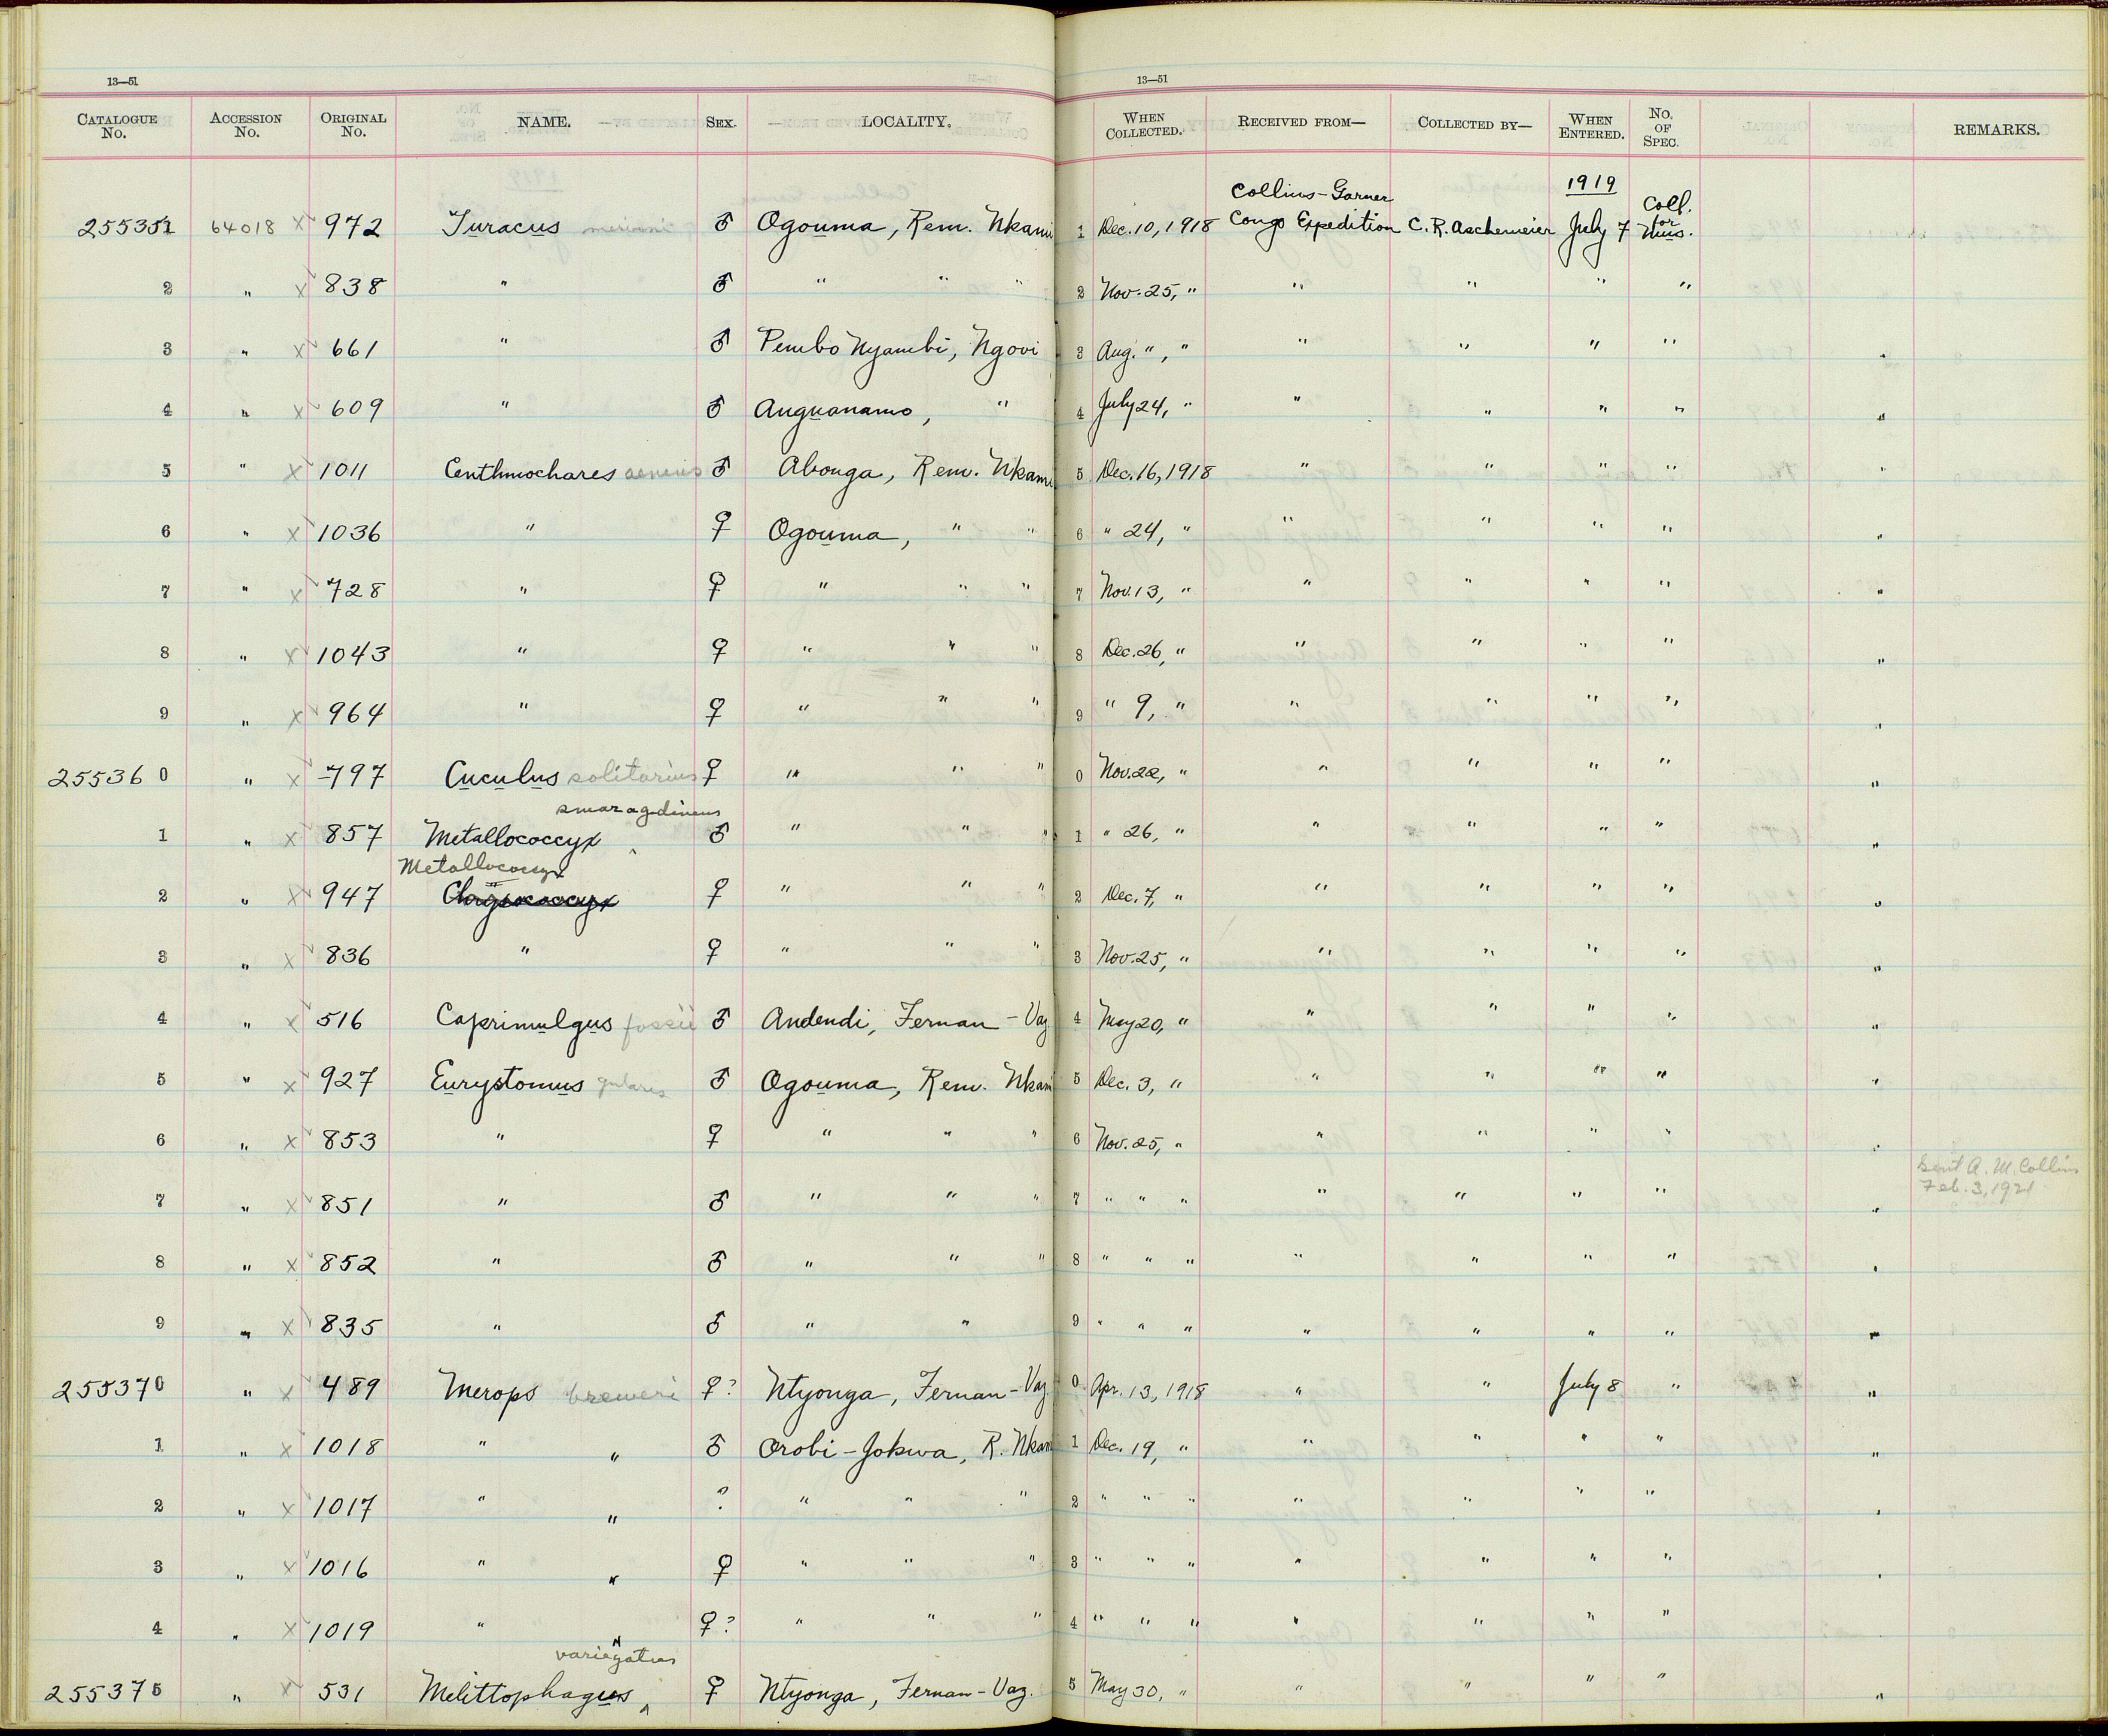 13—51
13—51
CATALOGUE No. ACCESSION No. ORIGINAL No. NAME. SEX. LOCALITY. WHEN COLLECTED. RECEIVED FROM— COLLECTED BY— WHEN ENTERED. No. OF SPEC. REMARKS.
255351 64018 x 972 Turacus ♂ Ogouma, Rem. Nkami 1 Dec. 10, 1918 Collins-Garner Congo Expedition C. R. Aschemeier 1919 July 7 Coll. for Mus.
2 " x 838 " ♂ " " " 2 Nov. 25, " " " " "
3 " x 661 " ♂ Pembo Nyambi, Ngovi 3 Aug. ", " " " " " "
4 " x 609 " ♂ Anguanamo, " 4 July 24, " " " " " "
5 " x 1011 Centhmochares aeneus ♂ Abonga, Rem. Nkami 5 Dec. 16, 1918 " " " " "
6 " x 1036 " ♀ Ogouma, " " 6 " 24, " " " " " "
7 " x 728 " ♀ " " " 7 Nov. 13, " " " " " "
8 " x 1043 " ♀ " " " 8 Dec. 26, " " " " " "
9 " x 964 " ♀ " " " 9 " 9, " " " " " "
255360 " x 797 Cuculus solitarius ♀ " " " 0 Nov. 22, " " " " " "
1 " x 857 Metallococcyx smaragdineus ♂ " " " 1 " 26, " " " " " "
2 " x 947 Metallococcyx Chrysococcyx ♀ " " " 2 Dec. 7, " " " " " "
3 " x 836 " ♀ " " " 3 Nov. 25, " " " " " "
4 " x 516 Caprimulgus fossii ♂ Andendi, Fernan-Vaz 4 May 20, " " " " " "
5 " x 927 Eurystomus gularis ♂ Ogouma, Rem. Nkami 5 Dec. 3, " " " " " "
6 " x 853 " ♀ " " " 6 Nov. 25, " " " " " "
7 " x 851 " ♂ " " " 7 " " " " " " " " Sent A. M. Collins Feb. 3, 1921
8 " x 852 " ♂ " " " 8 " " " " " " " "
9 " x 835 " ♂ " " 9 " " " " " " " "
255370 " x 489 Merops breweri ♀? Ntyonga, Fernan-Vaz 0 Apr. 13, 1918 " " July 8 " "
1 " x 1018 " " ♂ Orobi-Jokwa, R. Nkami 1 Dec. 19, " " " " " "
2 " x 1017 " " ? " " " 2 " " " " " " " "
3 " x 1016 " " ♀ " " " 3 " " " " " " " "
4 " x 1019 " " ♀? " " " 4 " " " " " " "
255375 " x 531 Melittophagus variegatus ♀ Ntyonga, Fernan-Vaz. 5 May 30, " " " " " "